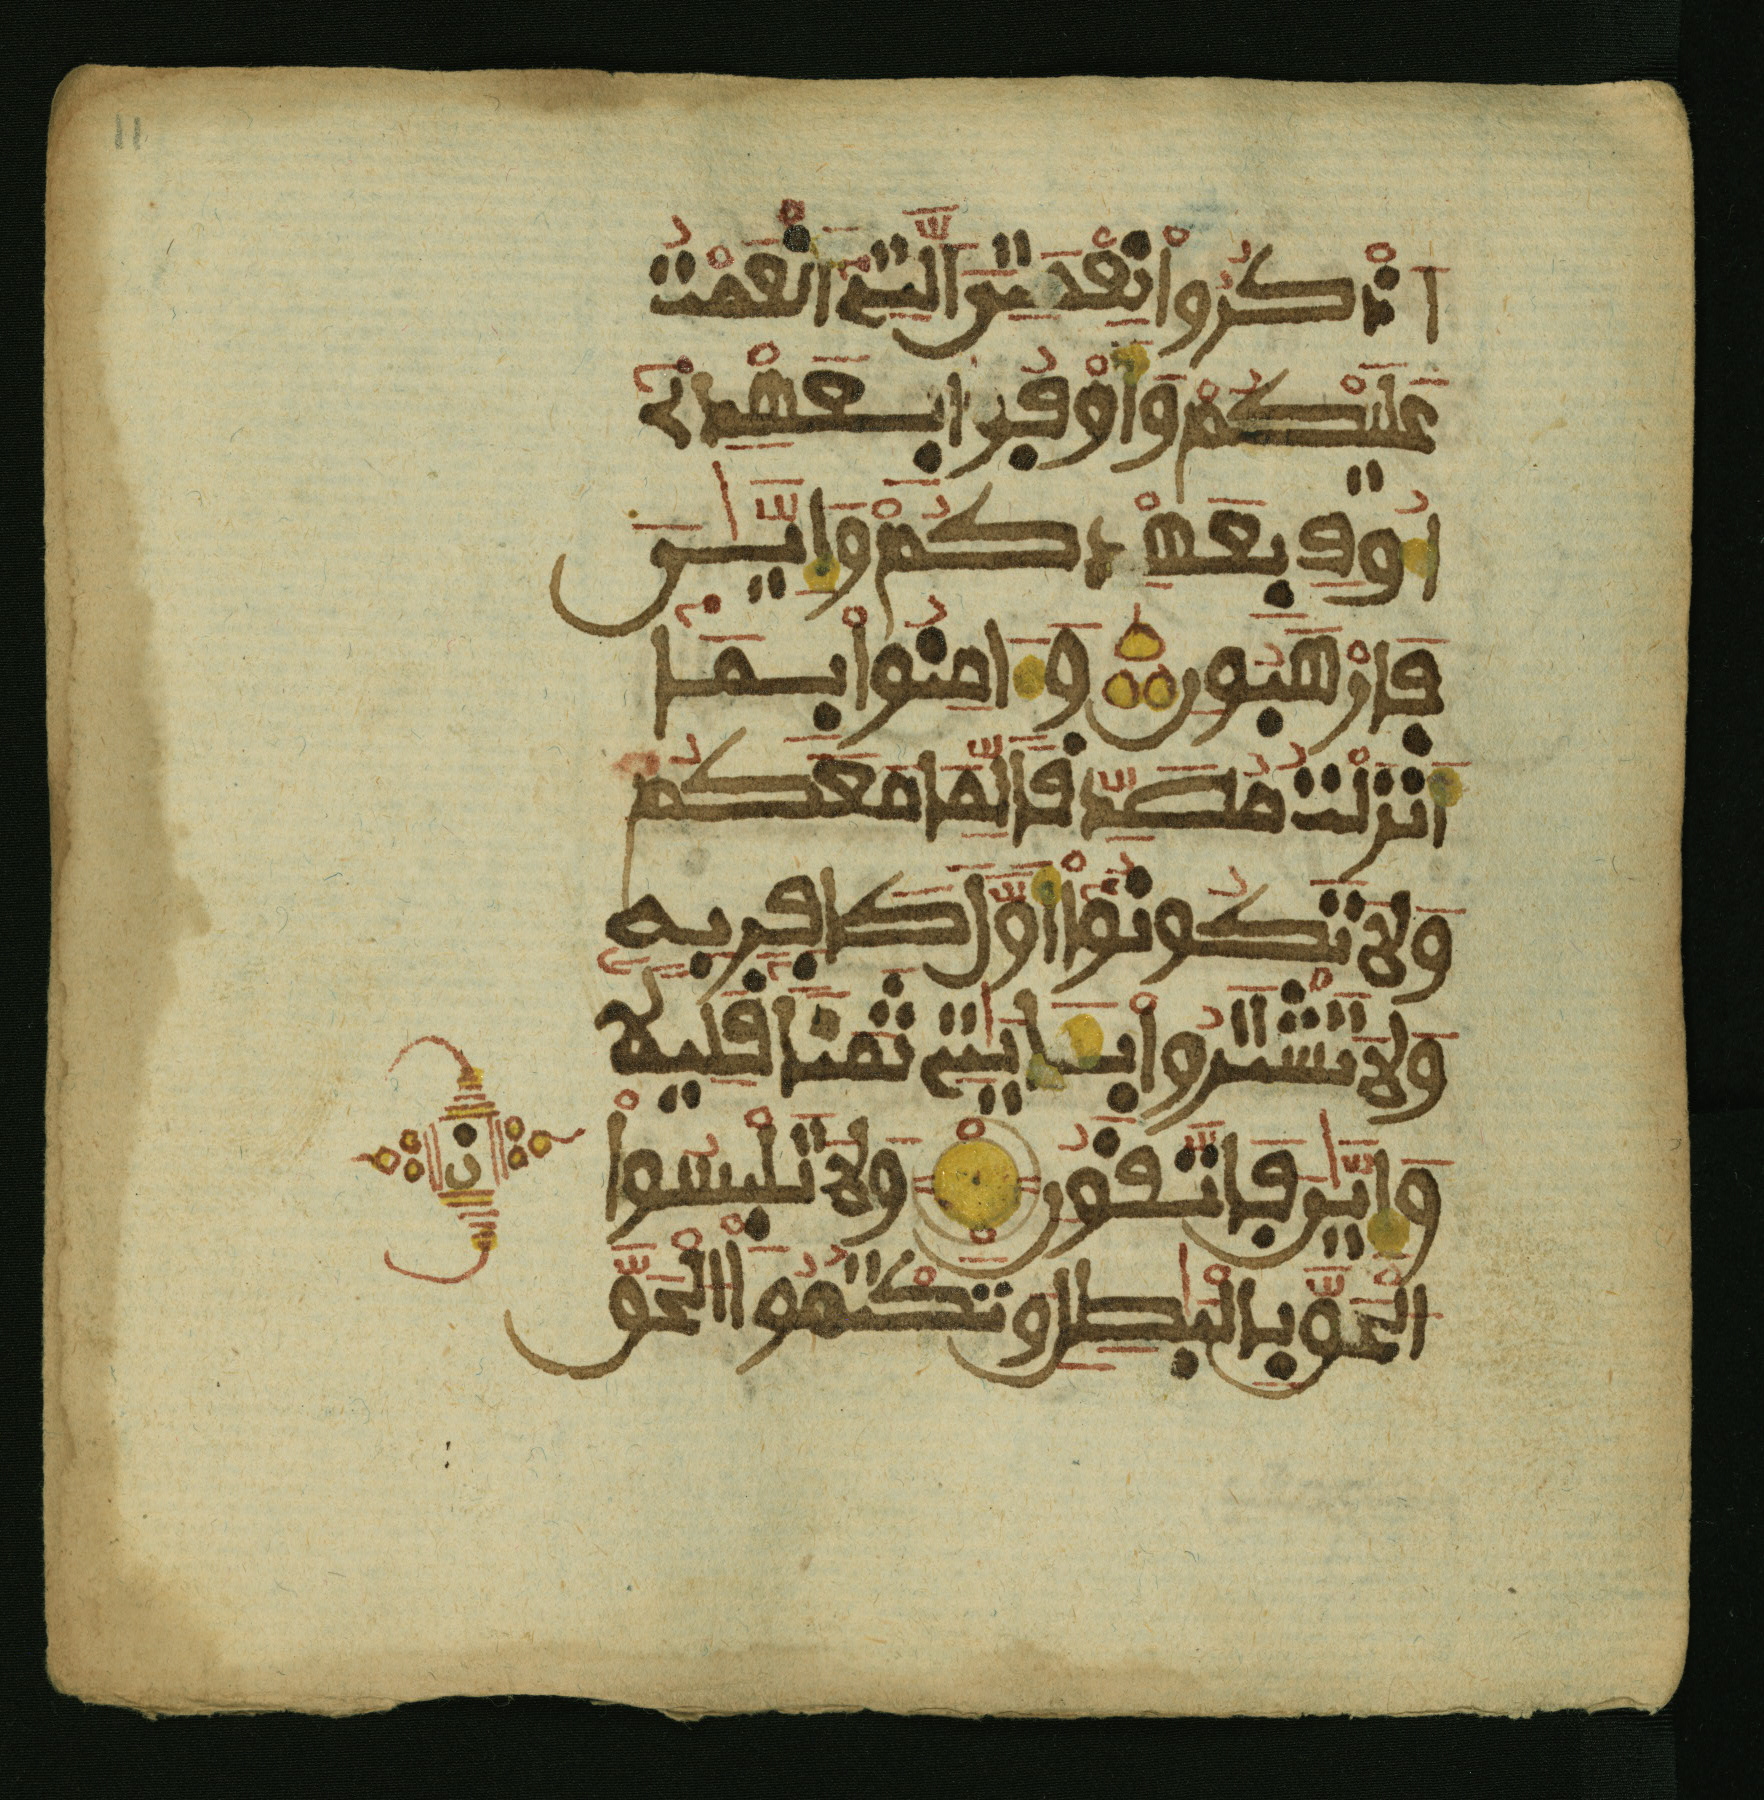 11
اذْكُرُواْ نِعْمَتِىَ الَّتِے أَنْعَمْتُ
عَلَيْكُمْ وَأَوْفُواْ بِعَهْدِے
أُوفِ بِعَهْدِكُمْ وَإِيَّٰىَ
فَارْهَبُونِ وَءَامِنُواْ بِمَا
أَنزَلْتُ مُصَدِّقاً لِّمَا مَعَكُمْ
وَلَا تَكُونُواْ أَوَّلَ كَافِرٍ بِهِ
وَلَا تَشْتَرُواْ بِـَٔايَٰتِے ثَمَناً قَلِيلًا
وَإِيَّٰىَ فَاتَّقُونِ وَلَا تَلْبِسُواْ
ن
الْحَقَّ بِالْبَٰطِلِ وَتَكْتُمُواْ الْحَقَّ